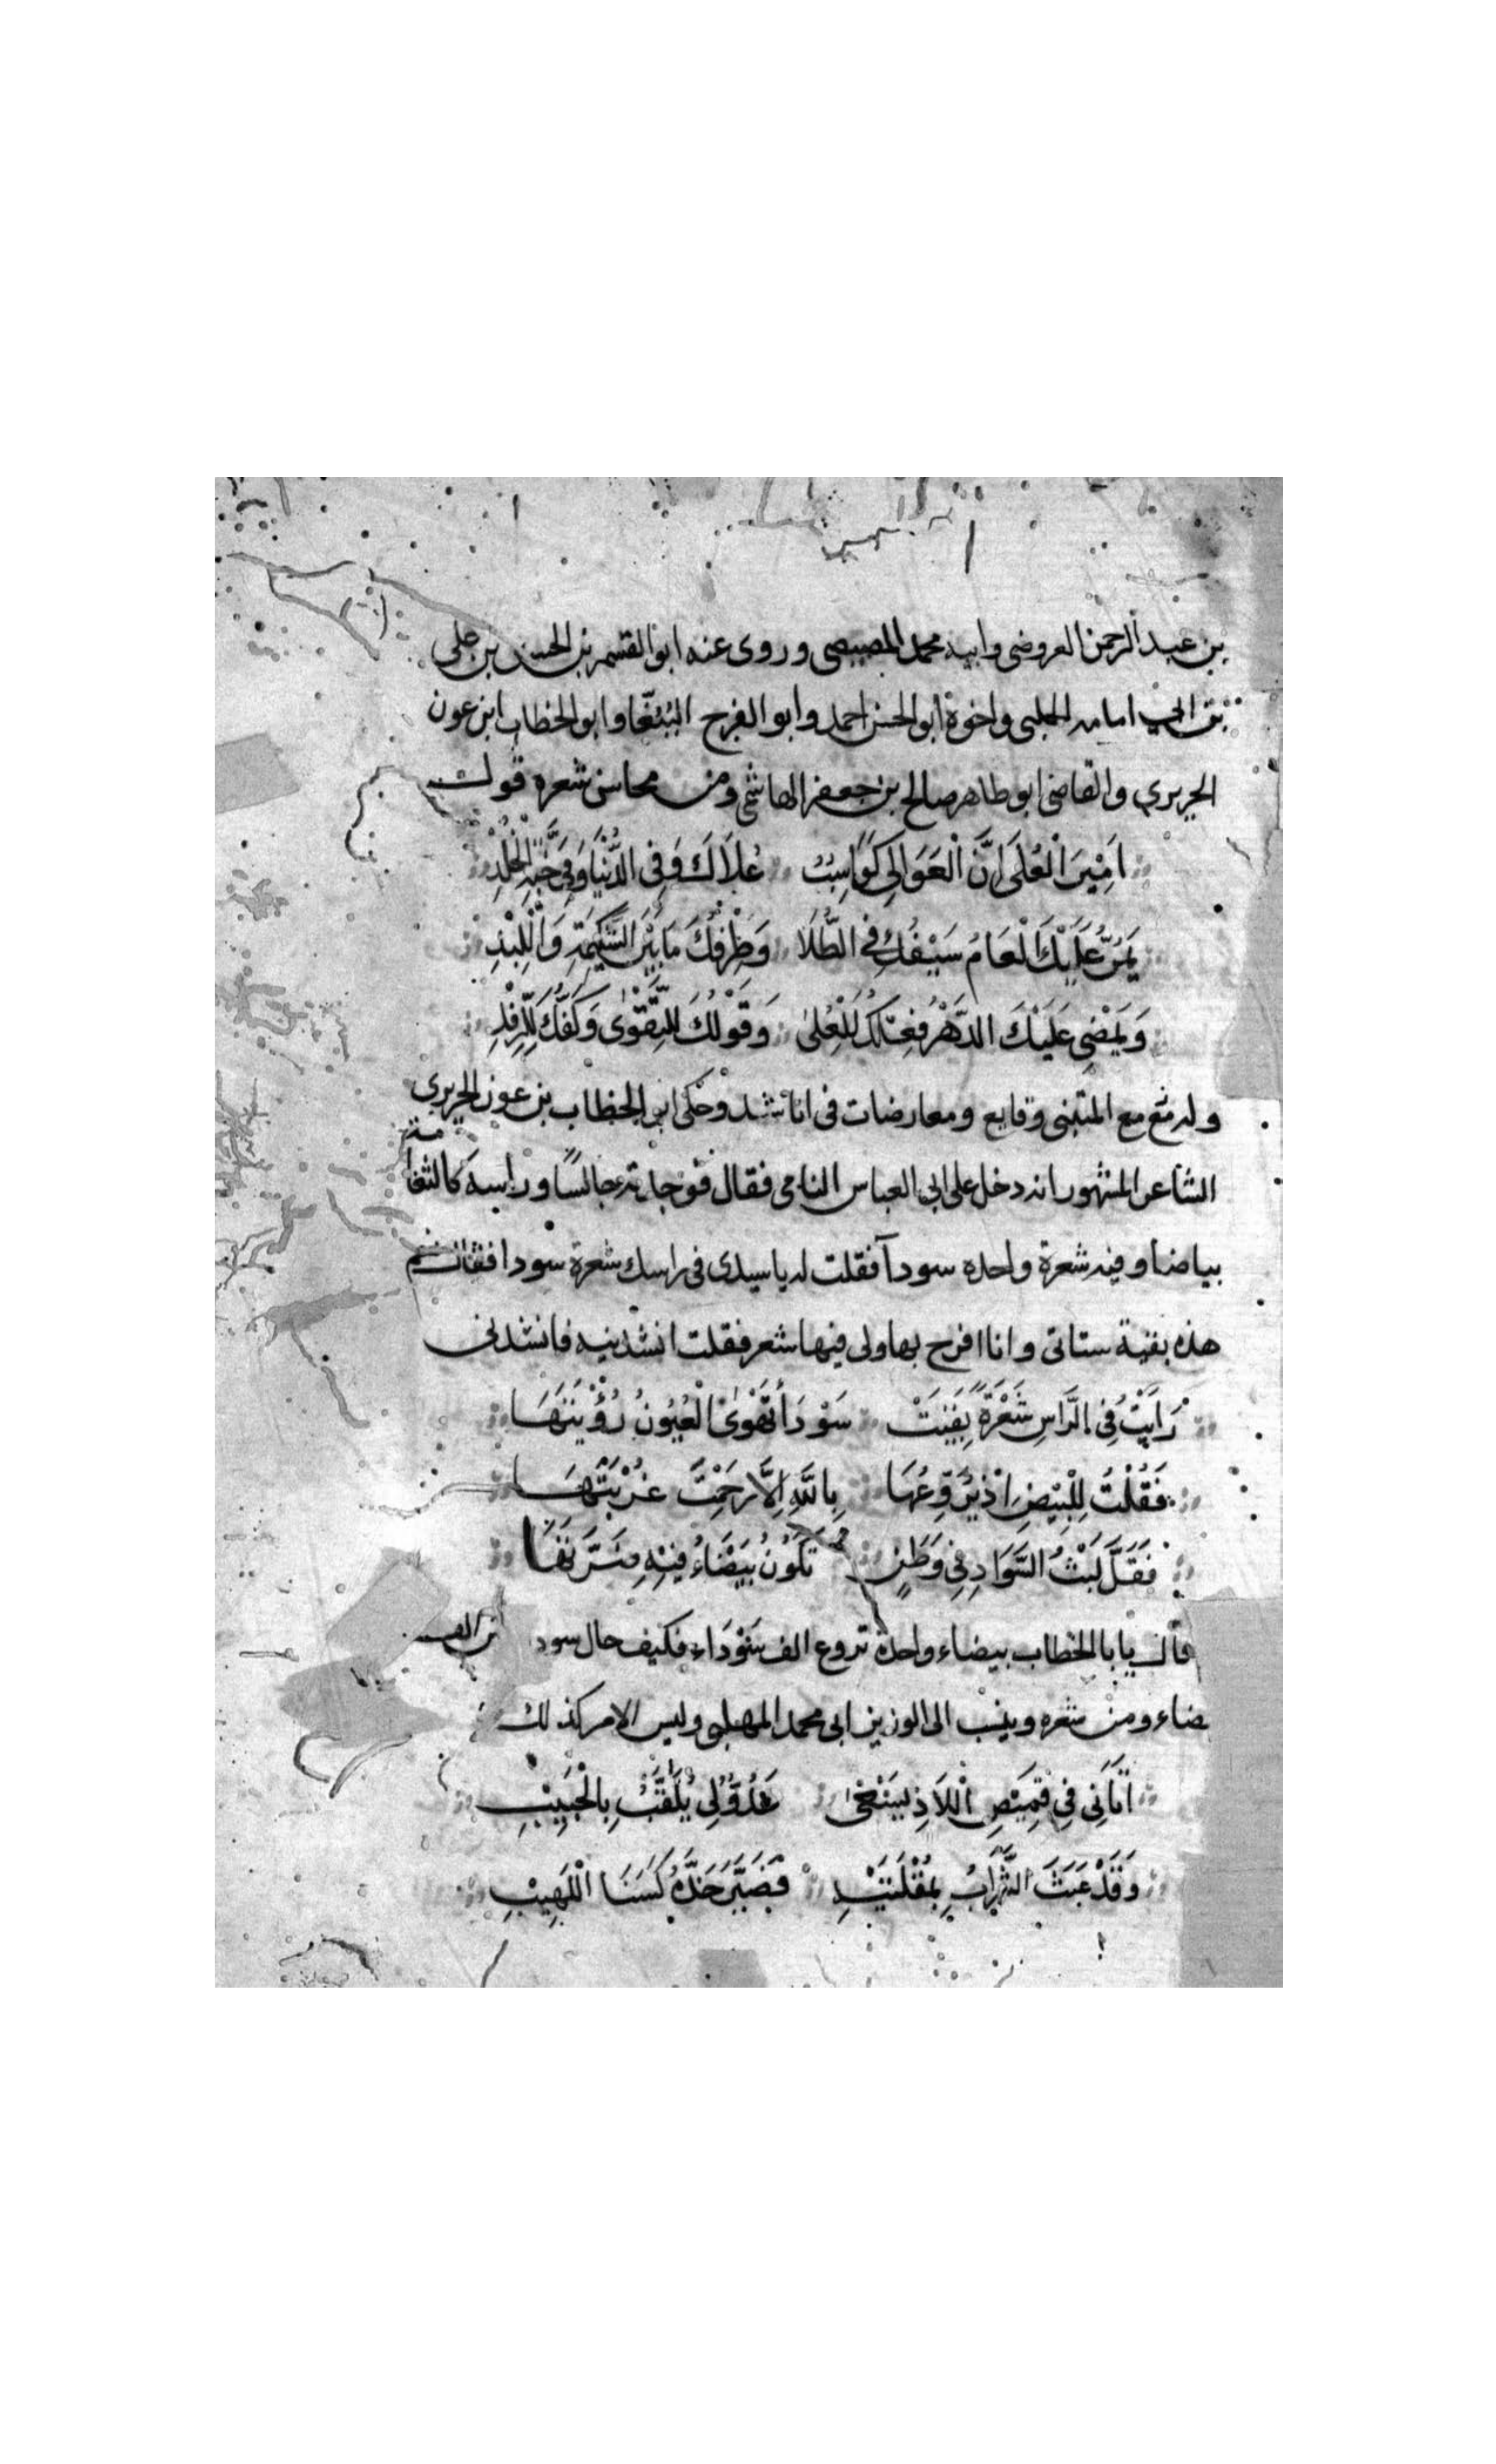 بن عبد الرحمن العروضى وابيه محمد المصيصى وروى عنه ابو القسم بن الحسين بن على
بن ابى اسامه الحلبى واخوة ابو الحسن احمد وابو الفرج الببغا وابو الخطاب ابن عون
الحريرى والقاضى ابو طاهر صالح بن جعفر الهاشمى ومن محاسن شعره قوله
اَمِيْرَ الْعُلَى اِنَّ الْعَوَالِى كَوَاسِبٌ عُلَاكَ وَفِى الدُّنْيَا وَفِى جَنَّةِ الْخُلْدِ
يَمُرُّ عَلَيْكَ الْعَامُ سَيْفُكَ فِى الطُّلَا وَطِرْفُكَ مَا بَيْنَ الشَّكِيْمَةِ وَاللِّبْدِ
وَيَمْضِى عَلَيْكَ الدَّهْرُ فِعْلُكَ لِلْعُلىٰ وَقَوْلُكَ لِلتَّقْوٰى وَكَفُّكَ لِلرِّفْدِ
وله مع المتنبى وقايع ومعارضات فى اناشد وحكى ابو الخطاب بن عون الحريرى
الشاعر المشهور انه دخل على ابى العباس النامى فقال فوجدته جالسًا وراسه كالثغامة
بياضا وفيه شعرة واحده سودآ فقلت له يا سيدى فى راسك شعرة سودا فقال نعم
هذه بقية ستاتى وانا افرح بها ولى فيها شعر فقلت انشدنيه فانشدنى
رَاَيْتُ فِى الرَّاسِ شَعْرَةً بَقِيَتْ سَوْدَاءَ تَهْوَى الْعُيُونُ رُؤْيَتَهَا
فَقُلْتُ لِلْبِيْضِ اِذْ تُرَوِّعُهَا بِاللهِ اِلَّا رَحِمْتَ غُرْبَتَهَا
فَقَلَّ لَبْثُ السَّوَادِ فِى وَطَنٍ تَكُوْنُ بَيْضَاءُ فِيْهِ
قال يابا الخطاب بيضاء واحدة تروع الف سَوْدَاء فكيف حال سودا بين الف
بيضاء ومن شعره وينسب الى الوزير ابى محمد المهلبى وليس الامر كذلك
اَتَانِى فِى قَمِيْصِ اللَّاذِ يَسْعٰى عَدُوٌّ لِى يُلَقَّبُ بِالْحَبِيْبِ
وَقَدْ عَبَثَ الشَّرَابُ بِمُقْلَتَيْهِ فَصَيَّرَ خَدَّهُ كَسَنَا اللَّهِيْبِ